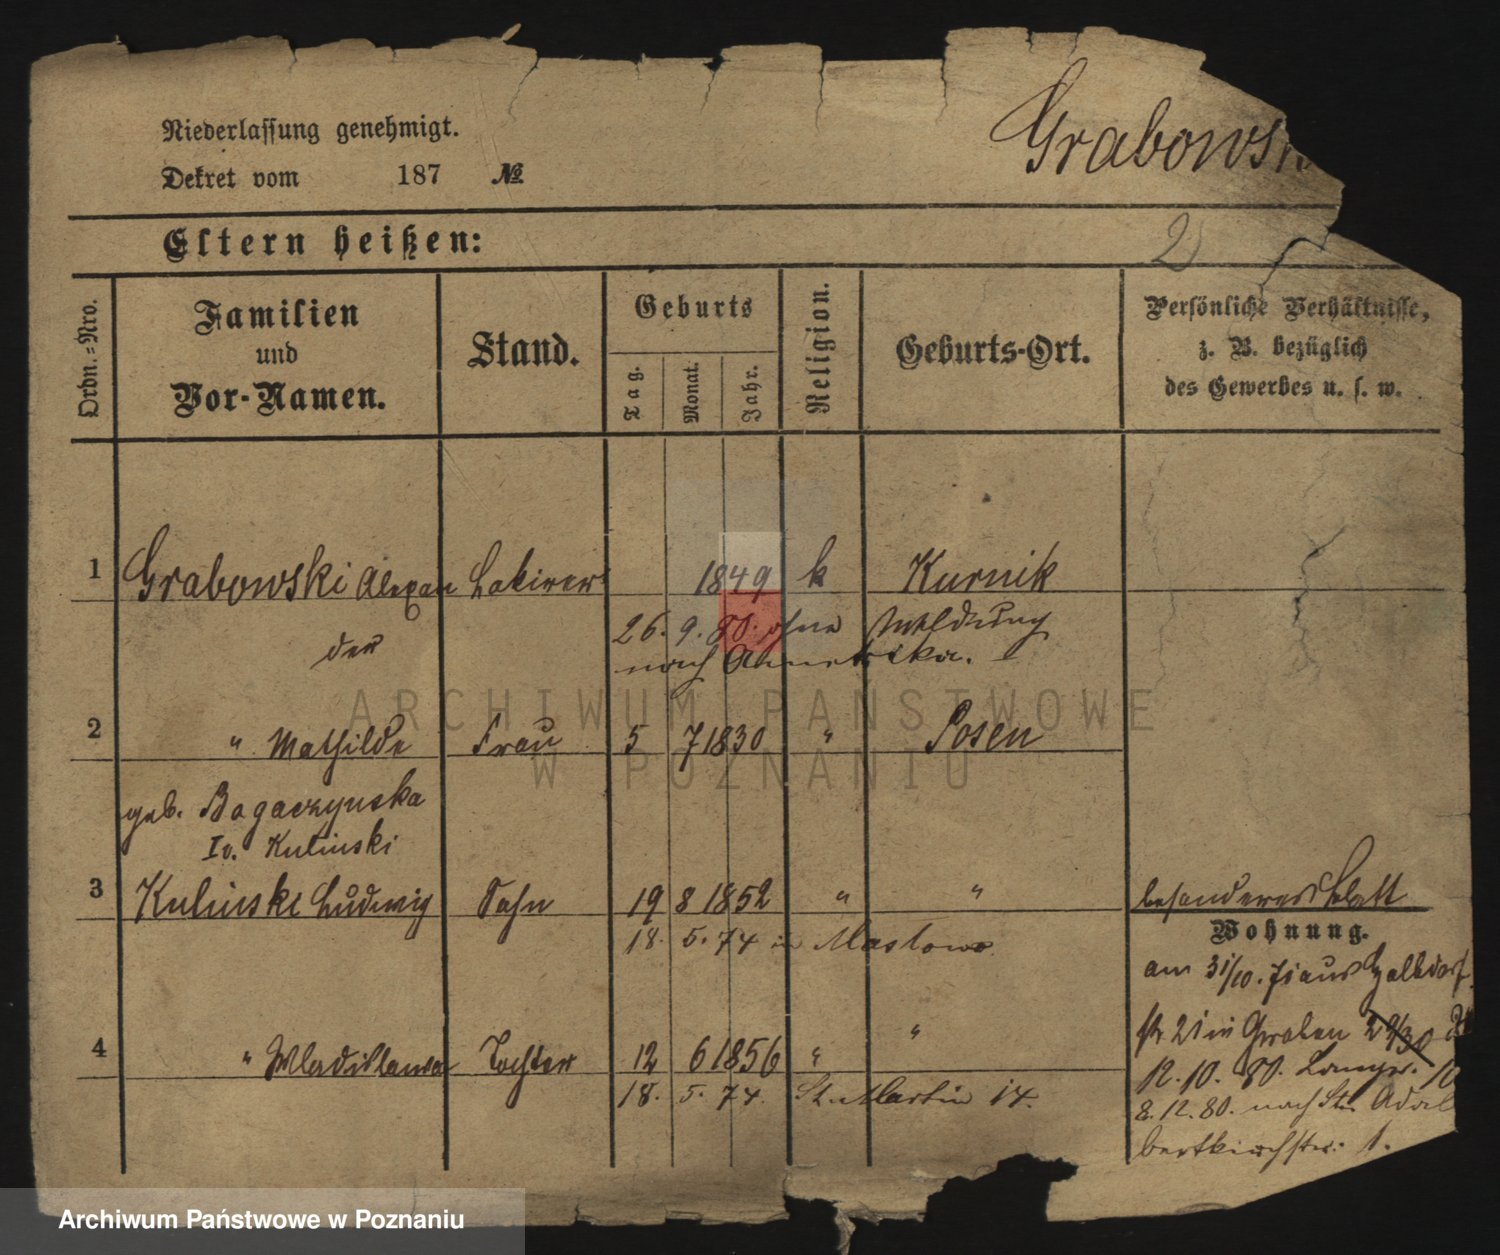 Niederlassung genehmigt.
Dekret vom 187 №
Grabowsk
2
Eltern heißen:
Ordn.-Nro.
Familien und Vor-Namen.
Stand.
Geburts
Tag. Monat. Jahr.
Religion.
Geburts-Ort.
Persönliche Verhältnisse,
z. B. bezüglich
des Gewerbes u. s. w.
1 Grabowski Alexan Lakirer 1849 k Kurnik
der
26. 9. 80. ohne Meldung
nach Amerika.
2 " Mathilde Frau 5 7 1830 " Posen
geb. Bogaczynska
Iv. Kulinski
3 Kulinski Ludwig Sohn 19 8 1852 " " besonderes Blatt
18. 5. 74 in Maslowo
Wohnung.
am 31/10. 71 aus Halbdorf
str 21 in Graben
4 " Wladislawa Tochter 12 6 1856 " "
18. 5. 74. St. Martin 14.
12. 10. 80. 10
8. 12. 80. nach St. Adal
bertkirchstr: 1.
ARCHIWUM PAŃSTWOWE
W POZNANIU
Archiwum Państwowe w Poznaniu